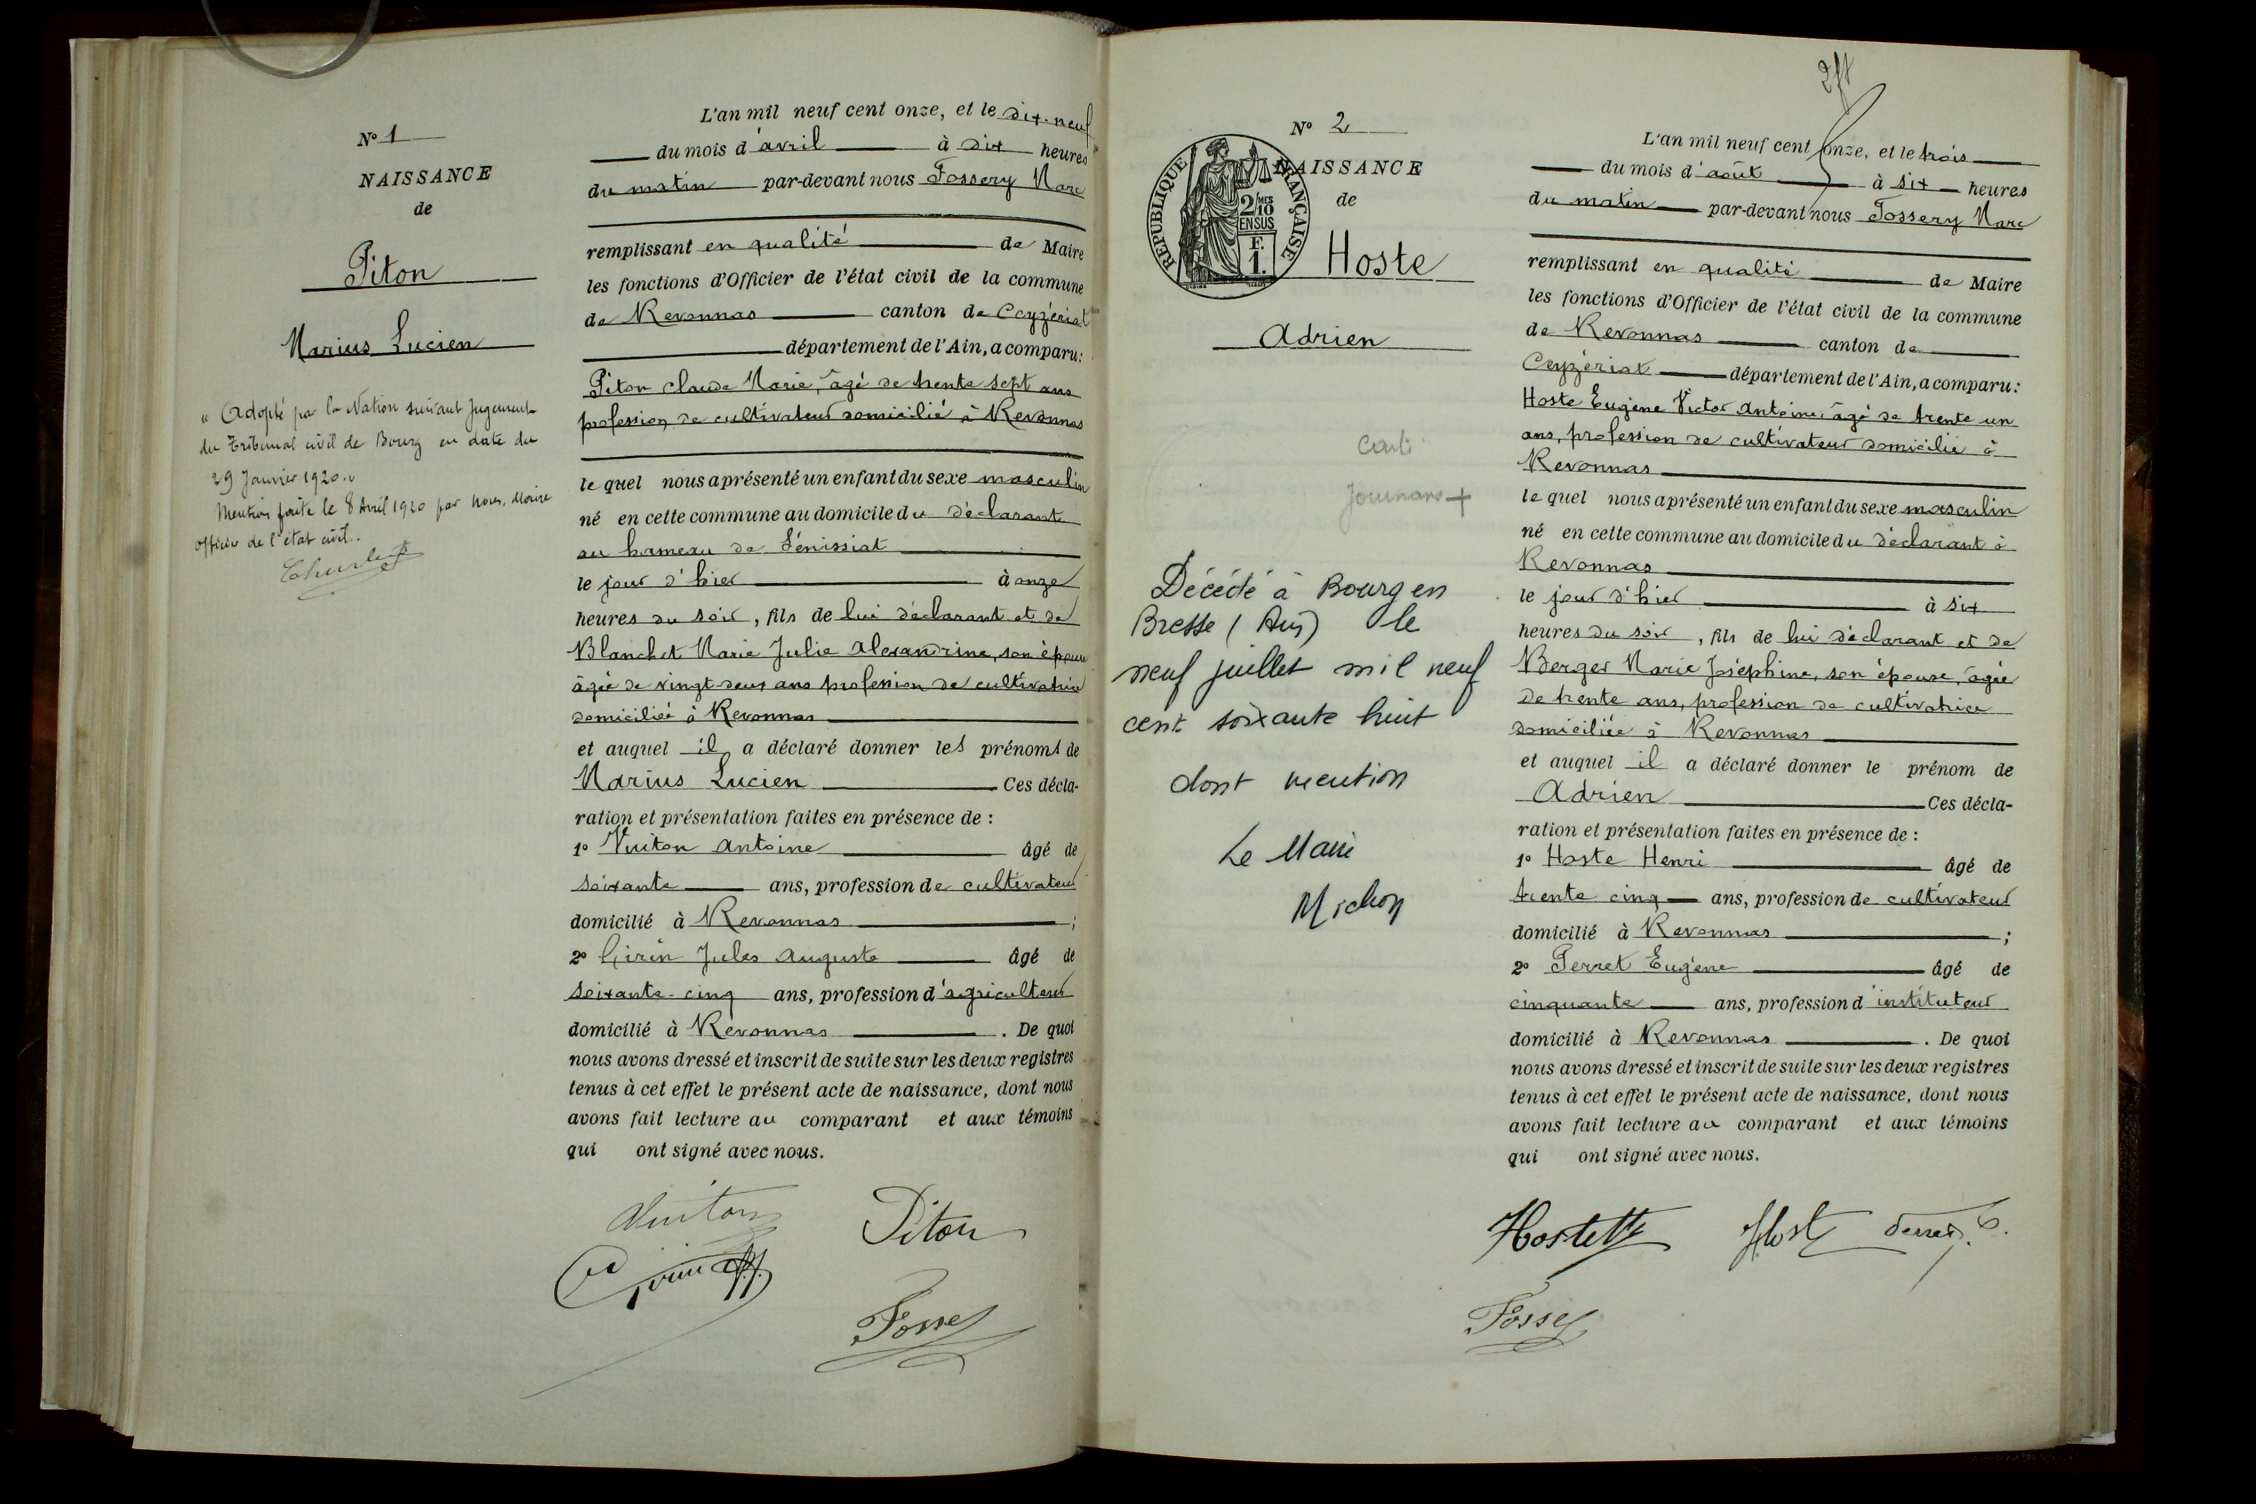 Nº 1
NAISSANCE
de
Piton
Marius Lucien
" Adopté par la Nation suivant jugement
du Tribunal civil de Bourg en date du
29 Janvier 1920. "
Mention faite le 8 Avril 1920 par nous, Maire
officier de l'état civil.
L'an mil neuf cent onze, et le dix-neuf
du mois d'avril à dix heures
du matin par-devant nous Fossery Marc
remplissant en qualité de Maire
les fonctions d'Officier de l'état civil de la commune
de Revonnas canton de Ceyzériat
département de l'Ain, a comparu:
Piton Claude Marie, âgé de trente sept ans
profession de cultivateur domicilié à Revonnas
le quel nous a présenté un enfant du sexe masculin
né en cette commune au domicile du déclarant
au hameau de Sénissiat
le jour d'hier à onze
heures du soir, fils de lui déclarant et de
Blanchet Marie Julie Alexandrine, son épouse
âgée de vingt-deux ans profession de cultivatrice
domiciliée à Revonnas
et auquel il a déclaré donner les prénoms de
Marius Lucien Ces décla-
ration et présentation faites en présence de :
1º Vuiton Antoine âgé de
soixante ans, profession de cultivateur
domicilié à Revonnas ;
2º Girin Jules Auguste âgé de
soixante-cinq ans, profession d'agriculteur
domicilié à Revonnas . De quoi
nous avons dressé et inscrit de suite sur les deux registres
tenus à cet effet le présent acte de naissance, dont nous
avons fait lecture au comparant et aux témoins
qui ont signé avec nous.
Vuiton Piton
Girin
Fossery
2/4
Nº 2
NAISSANCE
de
REPUBLIQUE FRANÇAISE
2/10 MES
EN SUS
F.
1.
Hoste
Adrien
Journans +
Décédé à Bourg en
Bresse (Ain) le
neuf juillet mil neuf
cent soixante huit
dont mention
Le Maire
Michon
L'an mil neuf cent onze, et le trois
du mois d'août à six heures
du matin par-devant nous Fossery Marc
remplissant en qualité de Maire
les fonctions d'Officier de l'état civil de la commune
de Revonnas canton de
Ceyzériat département de l'Ain, a comparu:
Hoste Eugène Victor Antoine, âgé de trente un
ans, profession de cultivateur domicilié à
Revonnas
le quel nous a présenté un enfant du sexe masculin
né en cette commune au domicile du déclarant à
Revonnas
le jour d'hier à six
heures du soir, fils de lui déclarant et de
Berger Marie Joséphine, son épouse, âgée
de trente ans, profession de cultivatrice
domiciliée à Revonnas
et auquel il a déclaré donner le prénom de
Adrien Ces décla-
ration et présentation faites en présence de :
1º Hoste Henri âgé de
trente cinq ans, profession de cultivateur
domicilié à Revonnas ;
2º Perret Eugène âgé de
cinquante ans, profession d'instituteur
domicilié à Revonnas . De quoi
nous avons dressé et inscrit de suite sur les deux registres
tenus à cet effet le présent acte de naissance, dont nous
avons fait lecture au comparant et aux témoins
qui ont signé avec nous.
Hoste Hoste Perret E.
Fossery